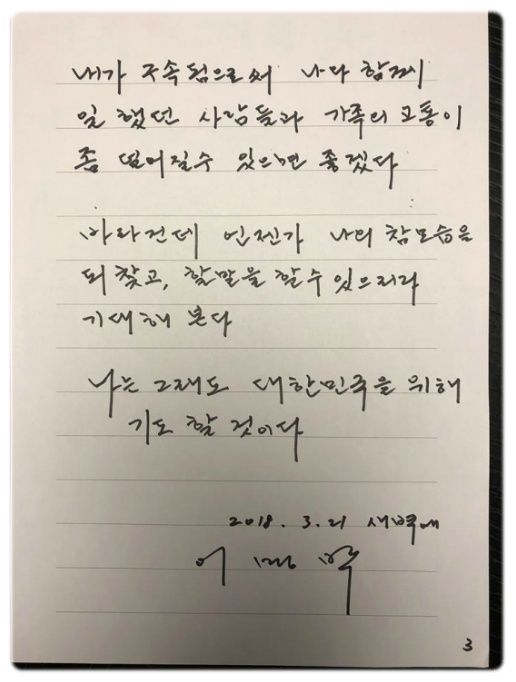 내가 구속됨으로써 나와 함께
일 했던 사람들과 가족의 고통이
좀 덜어질수 있으면 좋겠다
바라건데 언젠가 나의 참모습을
되찾고, 할말을 할 수 있으리라
기대해 본다
나는 그래도 대한민국을 위해
기도 할 것이다
2018. 3. 21 새벽에
이 명 박
3